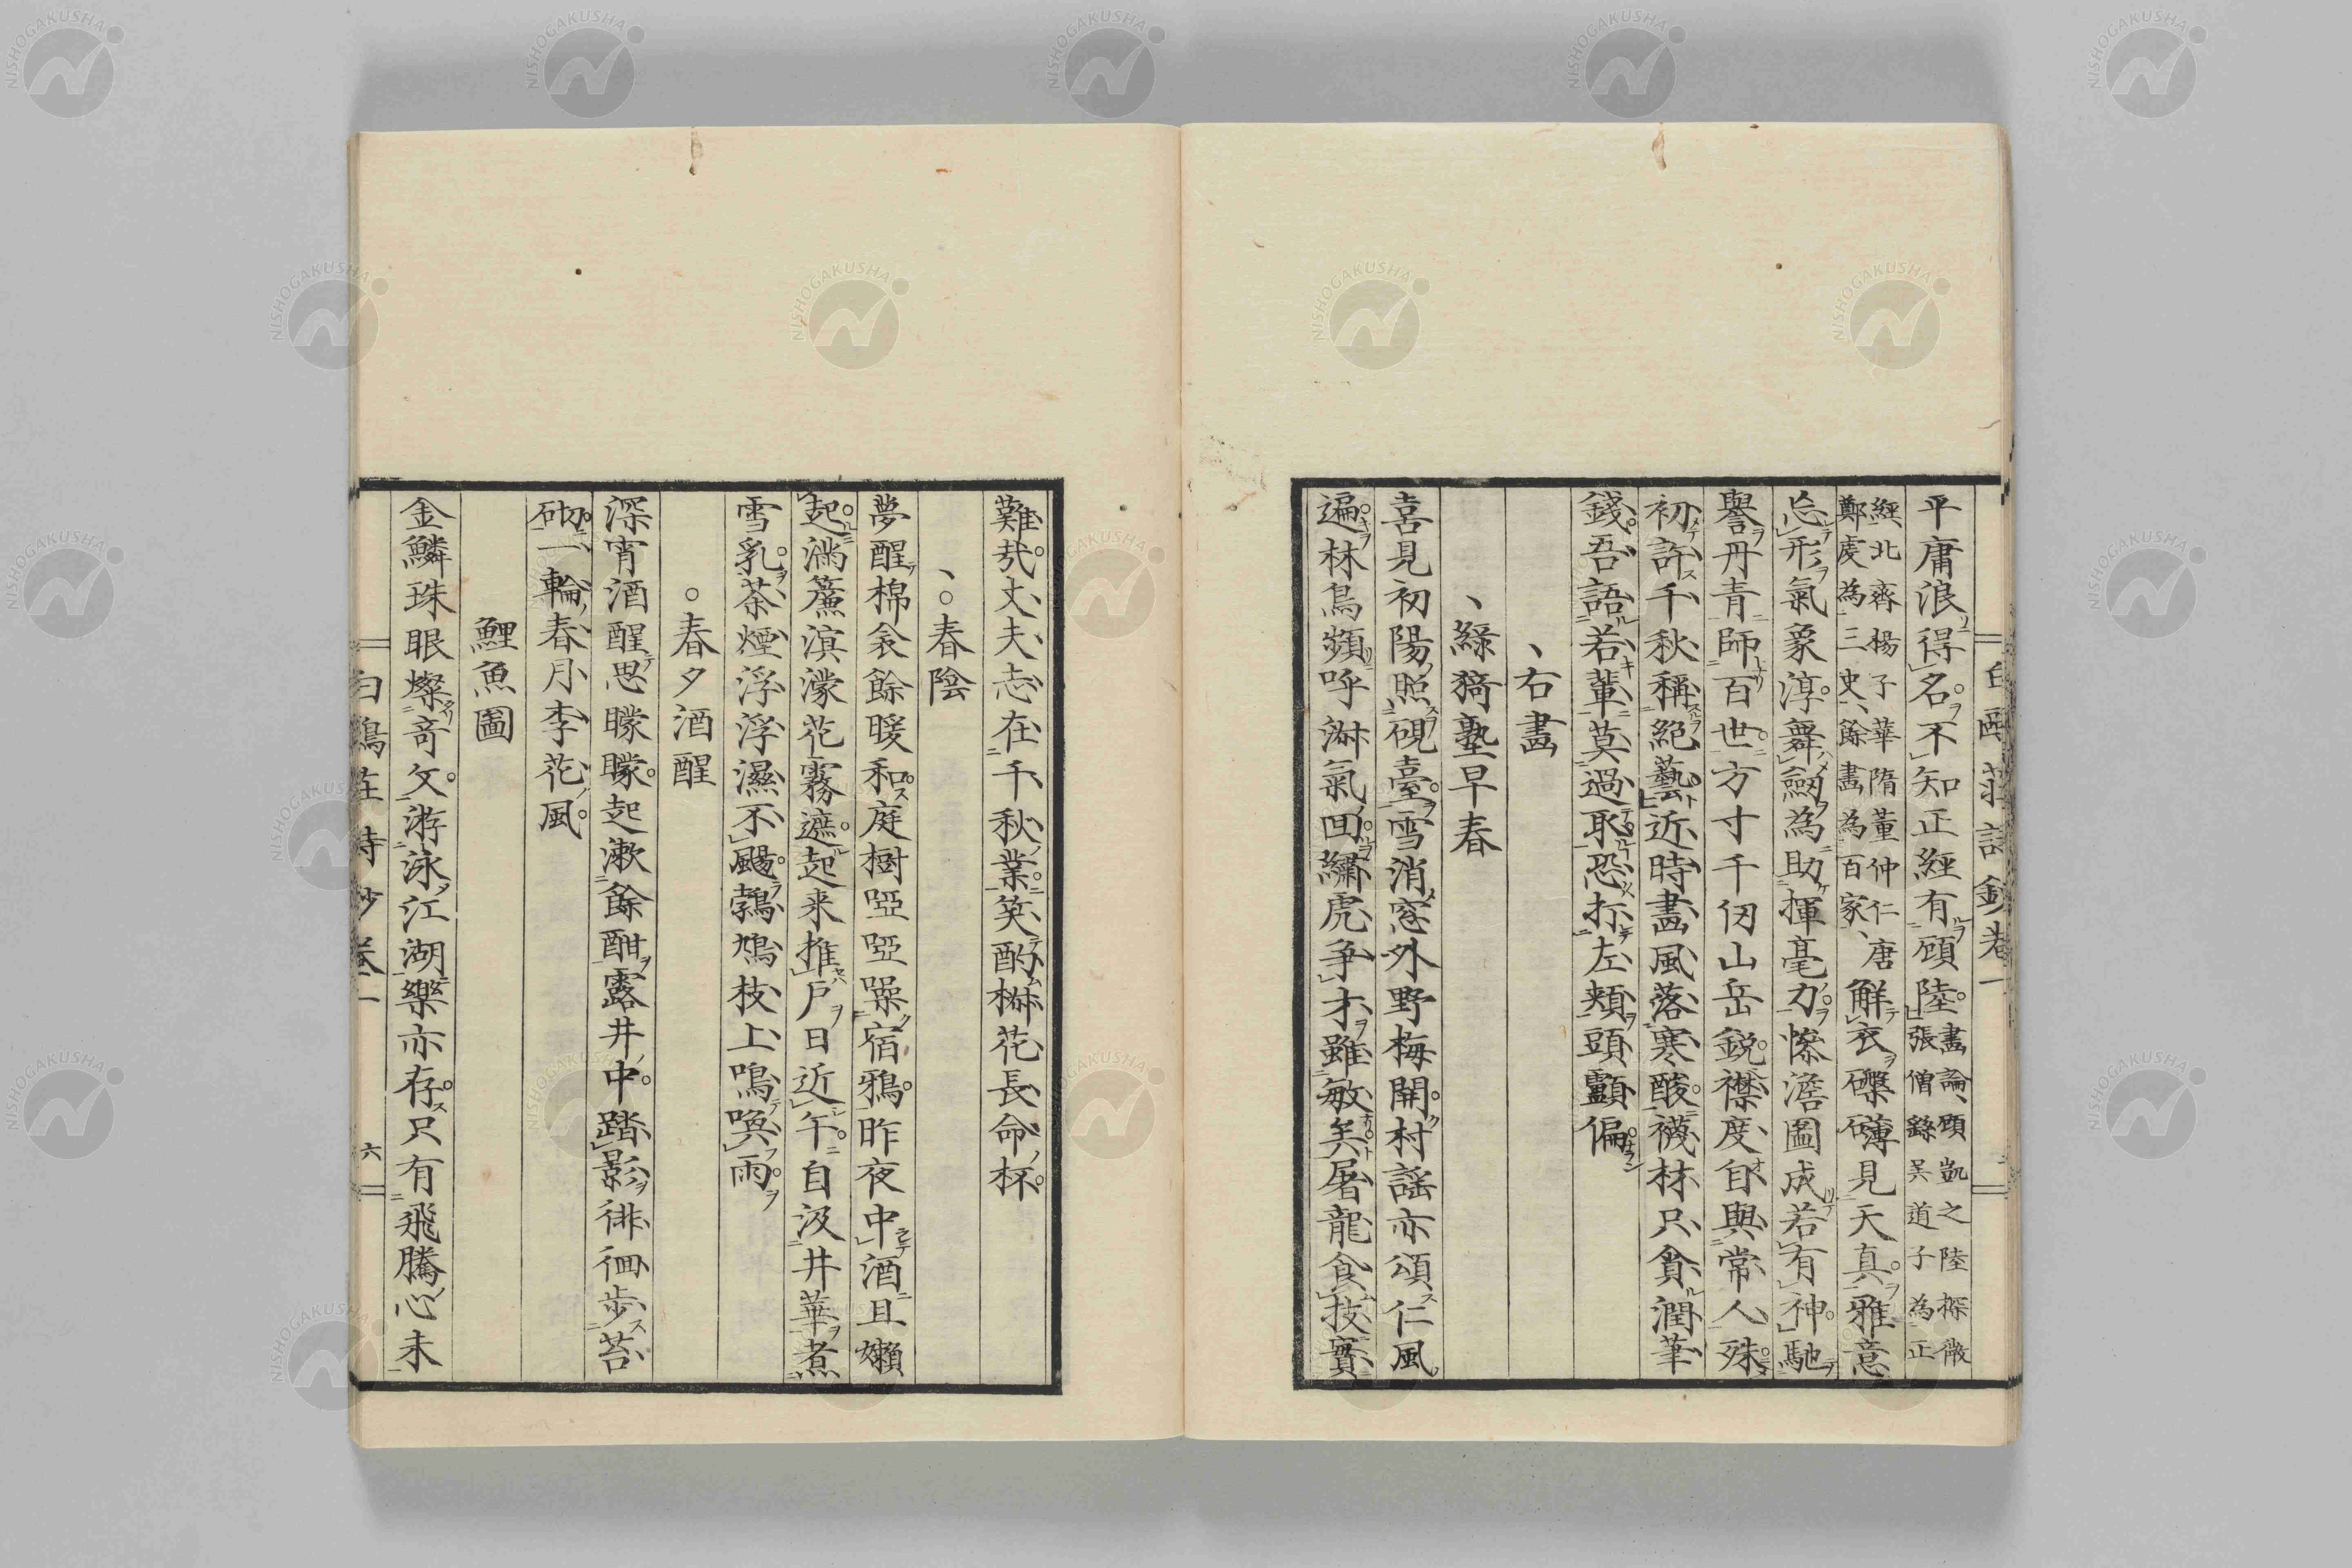 白鷗莊詩鈔卷一
平庸浪得名不知正經有顧陸畫論、顧凱之陸探微張僧繇吳道子為正
經北齊楊子華隋董仲仁唐鄭虔為三史、餘畫為百家、解衣礫礴見天真雅意
忘形氣象淳舞劔為助揮毫力慘澹圖成若有神馳
譽丹青師百世方寸千仞山岳銳襟度自與常人殊
初許千秋稱絕藝近時畫風落寒酸襪材只貪潤筆
錢吾語若輩莫過耻恐打左頰頭顱偏
右畫
綠猗塾早春
喜見初陽照硯臺雪消窓外野梅開村謠亦頌仁風
遍林鳥頻呼淑氣回繡虎爭才雖敏矣屠龍食技實
難哉丈夫志在千秋業笑酌椒花長命杯
春陰
夢醒棉衾餘暖和庭樹啞啞噪宿鴉昨夜中酒且嬾
起滿簾溟濛花霧遮起来推戶日近午自汲井華煮
雪乳茶煙浮浮濕不颺鵓鳩枝上鳴喚雨
春夕酒醒
深宵酒醒思朦朦起漱餘酣露井中踏影徘徊步苔
砌一輪春月李花風
鯉魚圖
金鱗珠眼燦奇文游泳江湖樂亦存只有飛騰心未
白鷗莊詩鈔卷一 六